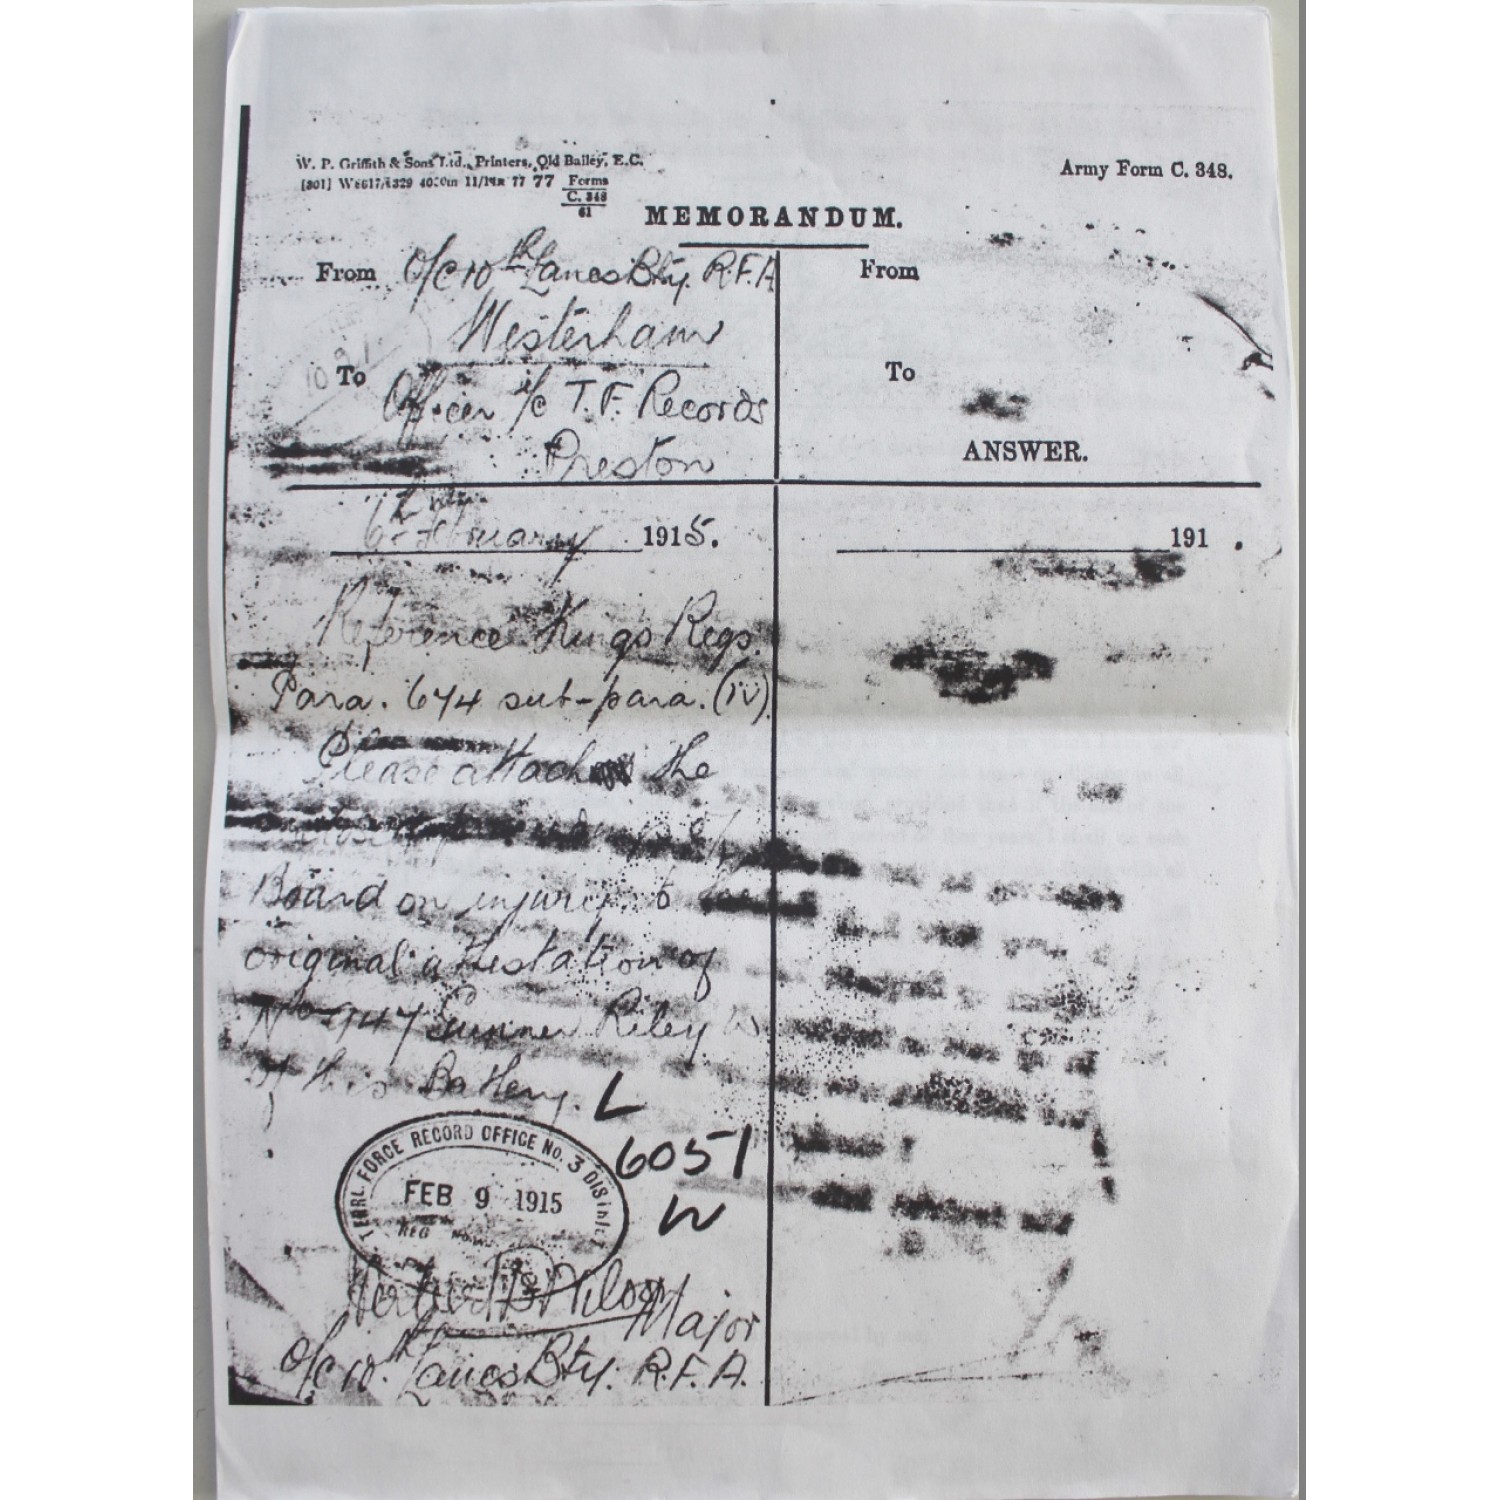 W. P. Griffith & Sons Ltd., Printers, Old Bailey, E.C.
Forms
C. 348
61
Army Form C. 348.
MEMORANDUM.
From O/C 10th Lancs Bty. R.F.A
Westerham
To Officer i/c T.F. Records
Preston
6th February 1915.
Reference King's Regs.
Para. 674 sub-para. (iv)
Please attach the
Board on injury to
original attestation of
No 947 Gunner Riley W
of this Battery.
L
6051
W
TERRL FORCE RECORD OFFICE No. 3 DISTRICT
FEB 9 1915
REG
Major
O/C 10th Lancs Bty. R.F.A.
From
To
ANSWER.
191 .